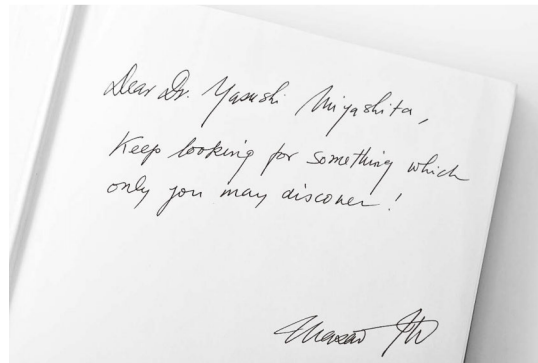 Dear Dr. Yasushi Miyashita,
Keep looking for something which
only you may discover!
Masao Ito